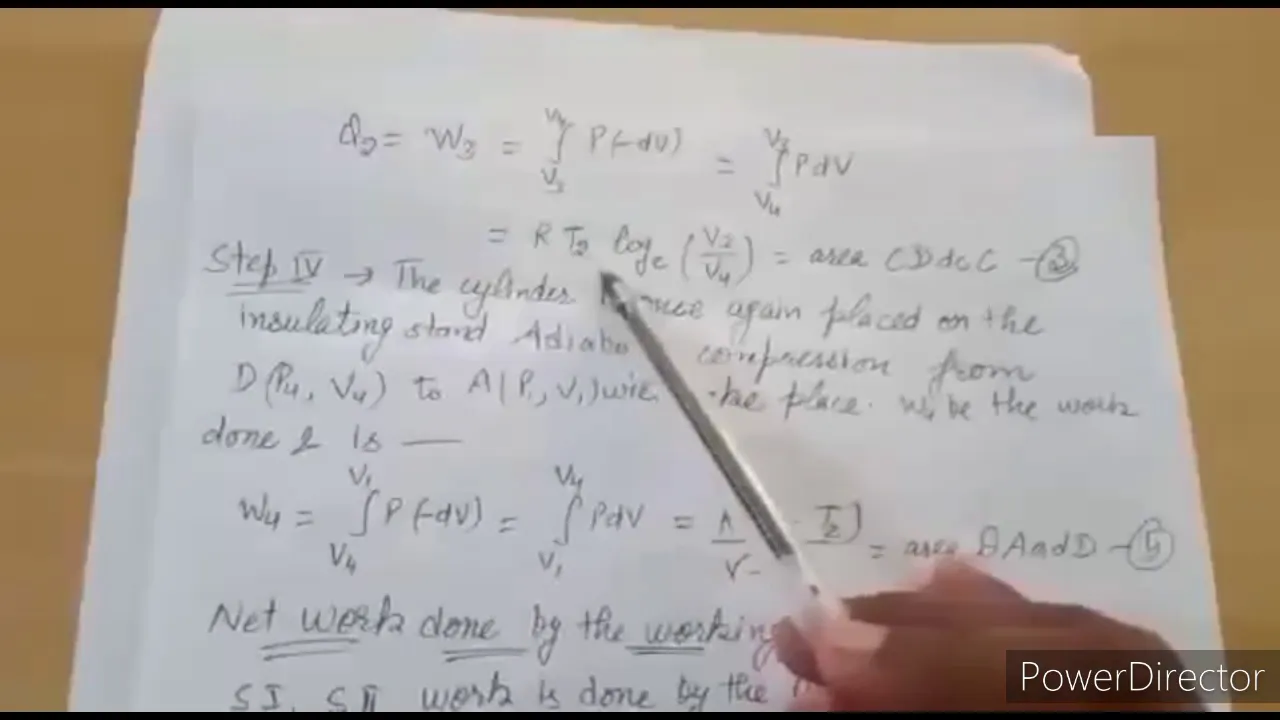 Q₂ = W₃ = ∫_{V₃}^{V₄} P(-dV) = ∫_{V₄}^{V₃} PdV
= R T₂ logₑ (V₃/V₄) = area CDdcC -③
Step IV → The cylinder once again placed on the
insulating stand Adiaba compression from
D(P₄, V₄) to A(P₁, V₁) place. W₄ be the work
done & is —
W₄ = ∫_{V₄}^{V₁} P(-dV) = ∫_{V₁}^{V₄} PdV = T₂) = area DAadD -
Net work done by the working
SI, SII work is done by the
PowerDirector